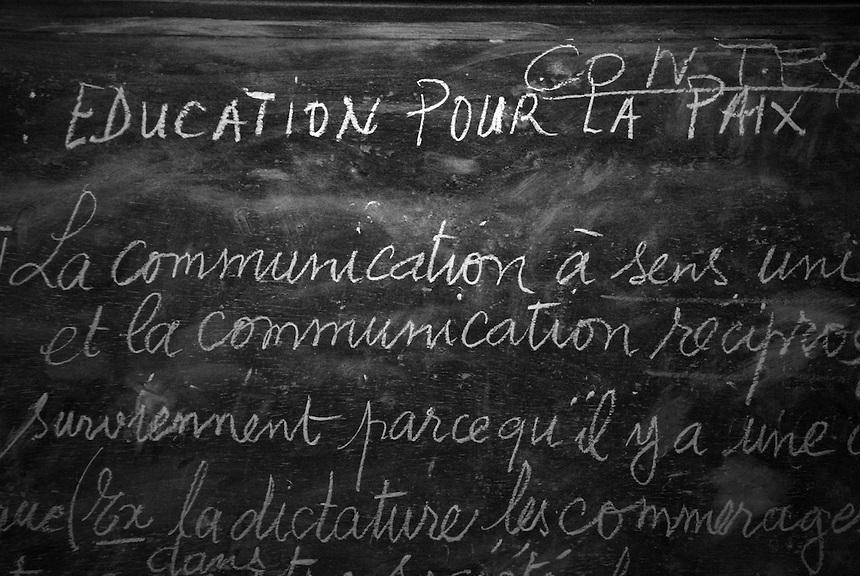 CONTEX
: EDUCATION POUR LA PAIX
La communication à sens uni
et la communication recipro
surviennent parcequ'il y a une
que (Ex la dictature les commerage
dans